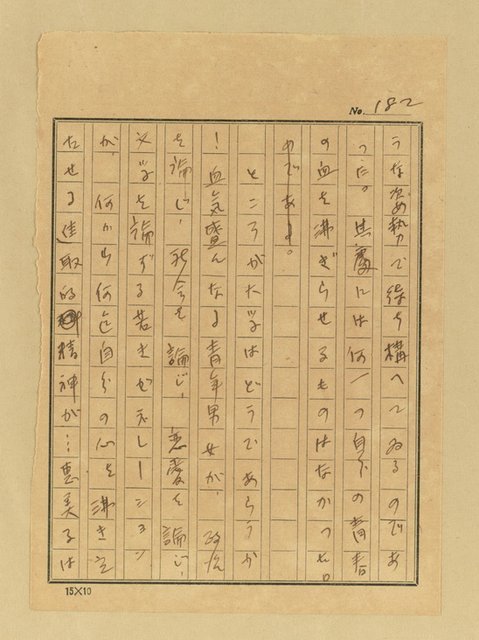 No. 182
うな姿勢で待ち構へてゐるのであ
つた。其處には何一つ自分の青春
の血を沸ぎらせるものはなかつた。
のである。
ところが大学はどうであらうか
！血気盛んなる青年男女が、政治
を論じ、社会を論じ、恋愛を論じ、
文学を論ずる若きゼネレーション
が、何から何迄自分の心を沸き立
たせる進取的精神が…恵美子は
15×10